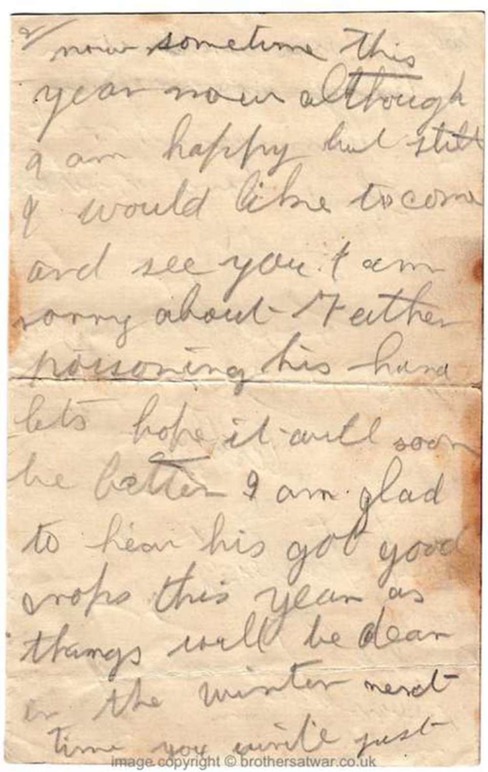 2/
now sometime this
year now although
I am happy but still
I would like to come
and see you I am
sorry about Father
poisoning his hand
lets hope it will soon
be better I am glad
to hear his got good
crops this year as
things will be dear
in the winter next
time you write just
image copyright © brothersatwar.co.uk